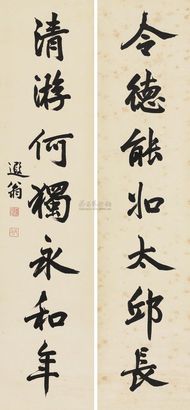 令德能如太邱長
清游何獨永和年
遐翁